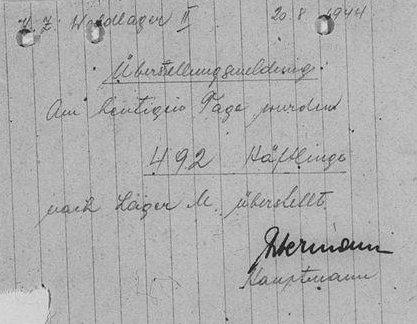 K Z Waldlager II 20 8 1944
Überstellungsmeldung
Am heutigen Tage wurden
492 Häftlinge
nach Lager M. überstellt
Hauptmann